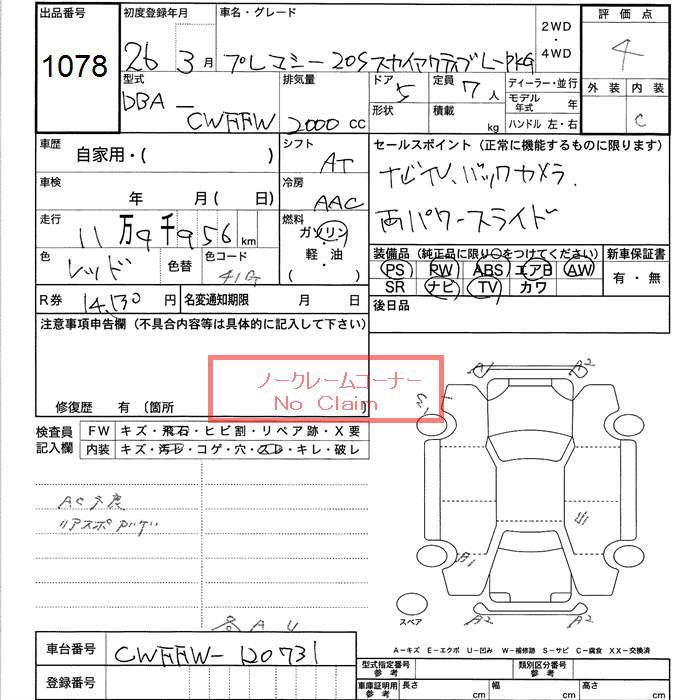 出品番号 初度登録年月 車名・グレード 2WD・4WD 評価点
1078 26 3月 プレマシー 20S スカイアクティブ L-PKG 4
型式 排気量 ドア 定員 ディーラー・並行 外装 内装
DBA- 5 7人 モデル年式 年
2000cc 形状 積載 kg ハンドル 左・右 C
車歴 自家用・( ) シフト AT セールスポイント (正常に機能するものに限ります)
車検 年 月(日) 冷房 AAC ナビTV、バックカメラ.
走行 11万9千956km 燃料 ガソリン・軽・油 ( ) 両パワースライド
色 レッド 色替 色コード
装備品 (純正品に限り○をつけてください) 新車保証書
PS PW ABS エアB AW 有・無
SR ナビ TV カワ
R券 14,130円 名変通知期限 月 日 後日品
注意事項申告欄 (不具合内容等は具体的に記入して下さい)
ノークレームコーナー
No Claim
修復歴 有 〔箇所
検査員記入欄 FW キズ・飛石・ヒビ割・リペア跡・X要
内装 キズ・汚レ・コゲ・穴・スレ・キレ・破レ
A1 A2
A1
スペア A2 A2
各AU
A-キズ E-エクボ U-凹み W-補修跡 S-サビ C-腐食 XX-交換済
車台番号 120731
登録番号
型式指定番号 類別区分番号
車庫証明用参考 長さ cm 幅 cm 高さ cm